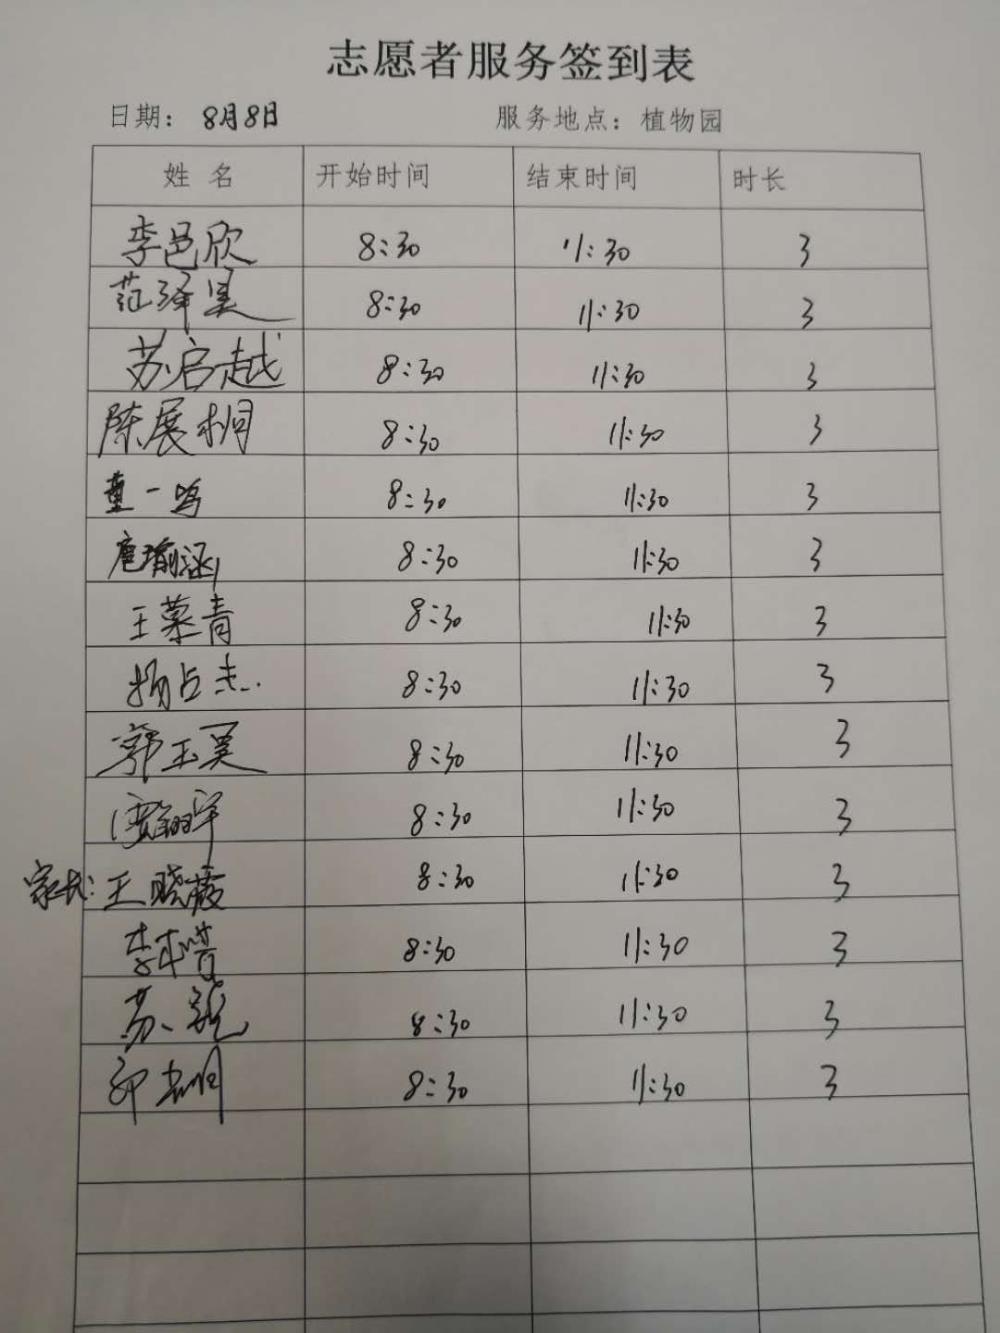 志愿者服务签到表
日期: 8月8日 服务地点: 植物园
姓名 开始时间 结束时间 时长
李邑欣 8:30 11:30 3
范泽昊 8:30 11:30 3
苏启越 8:30 11:30 3
陈展桐 8:30 11:30 3
董一鸣 8:30 11:30 3
唐瑜涵 8:30 11:30 3
王慕青 8:30 11:30 3
杨占杰 8:30 11:30 3
郭玉昊 8:30 11:30 3
8:30 11:30 3
家长: 王晓薇 8:30 11:30 3
李 8:30 11:30 3
苏 8:30 11:30 3
8:30 11:30 3